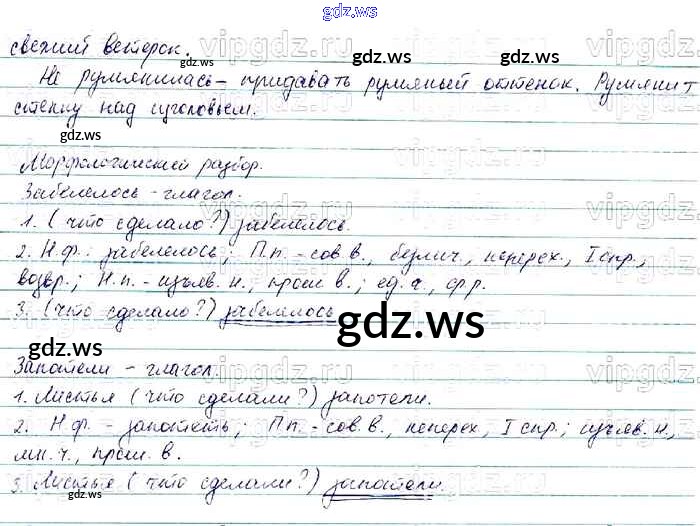 gdz.ws
свежий ветерок.
Не румянилась - придавать румяный оттенок. Румянит
стенку над изголовьем.
Морфологический разбор.
Забелелось - глагол.
1. (что сделало?) забелелось.
2. Н.ф.: забелелось; П.п. - сов.в., безлич., неперех., I спр.,
возвр.; Н.п. - изъяв.н., прош в.; ед.ч., ср.р.
3. (что сделало?) забелелось
Запотели - глагол.
1. Листья (что сделали?) запотели.
2. Н.ф. - запотеть; П.п. - сов.в., неперех., I спр.; изъяв.н.,
мн.ч., прош.в.
3. Листья (что сделали?) запотели.
vipgdz.ws
gdz.ws
gdz.ws
gdz.ws
gdz.ws
gdz.ws
gdz.ws
gdz.ws
gdz.ws